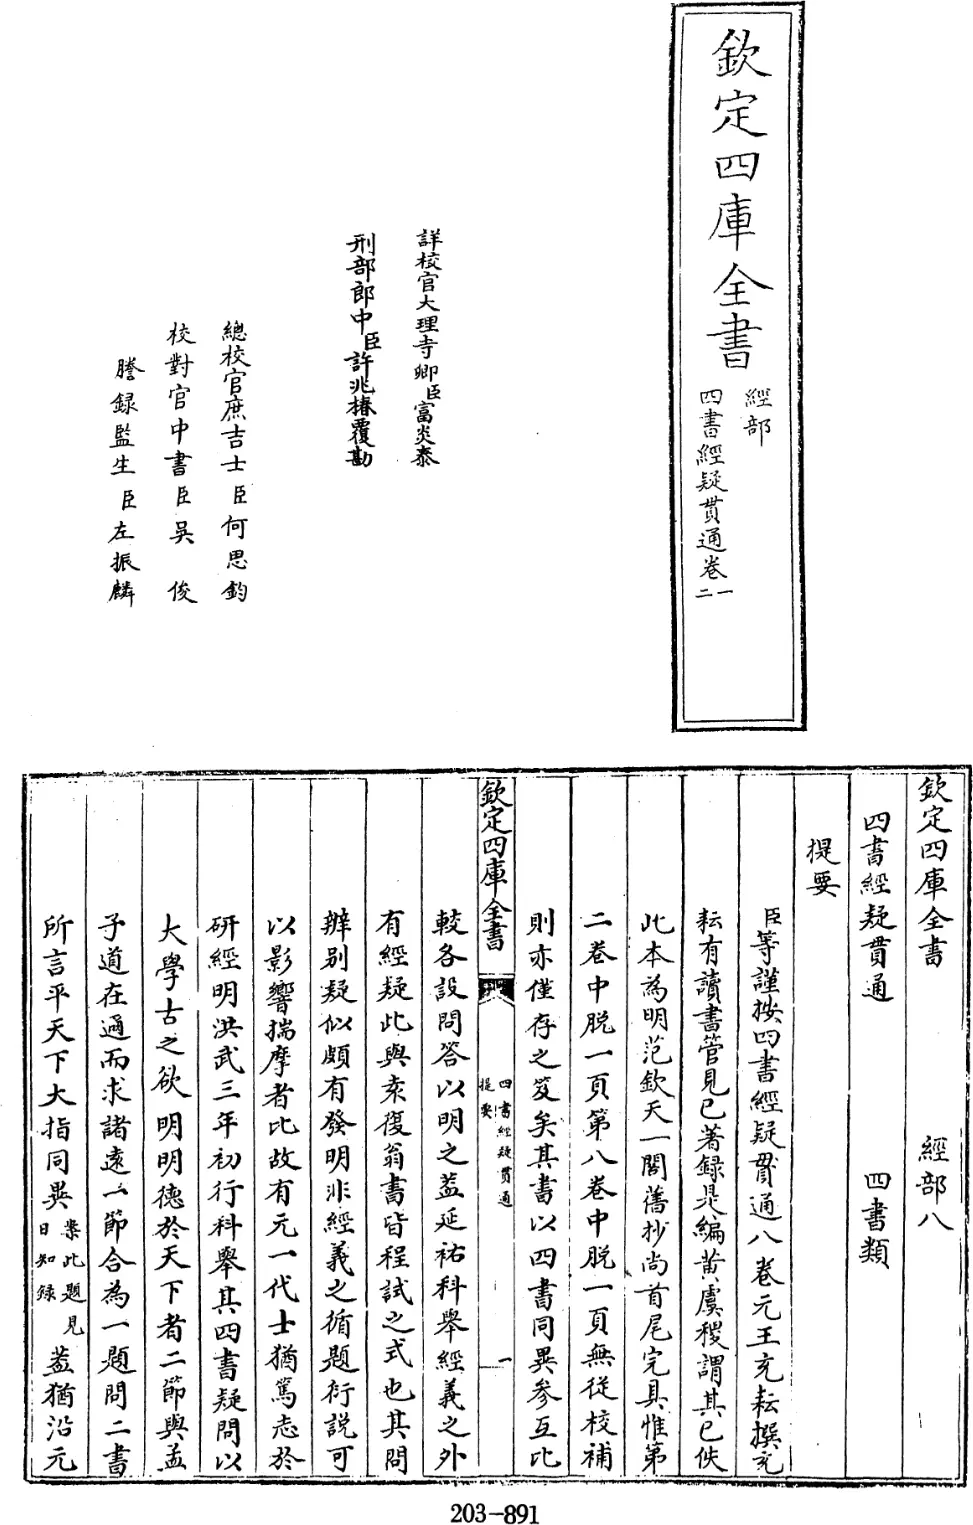 欽定四庫全書
經部
四書經疑貫通卷一二
詳校官大理寺卿臣富炎泰
刑部郎中臣許兆椿覆勘
總校官庶吉士臣何思鈞
校對官中書臣吳俊
謄録監生臣左振麟
欽定四庫全書 經部八
四書經疑貫通 四書類
提要
臣等謹按四書經疑貫通八卷元王充耘撰充
耘有讀書管見已著録是編黄虞稷謂其已佚
此本為明范欽天一閣舊抄尚首尾完具惟第
二卷中脱一頁第八卷中脱一頁無從校補
則亦僅存之笈矣其書以四書同異參互比
欽定四庫全書
四書經疑貫通
提要
一
較各設問答以明之蓋延祐科舉經義之外
有經疑此與袁復翁書皆程試之式也其問
辨别疑似頗有發明非經義之循題衍説可
以影響揣摩者比故有元一代士猶篤志於
研經明洪武三年初行科舉其四書疑問以
大學古之欲明明德於天下者二節與孟
子道在邇而求諸逺一節合為一題問二書
所言平天下大指同異案此題見日知録蓋猶沿元
203-891